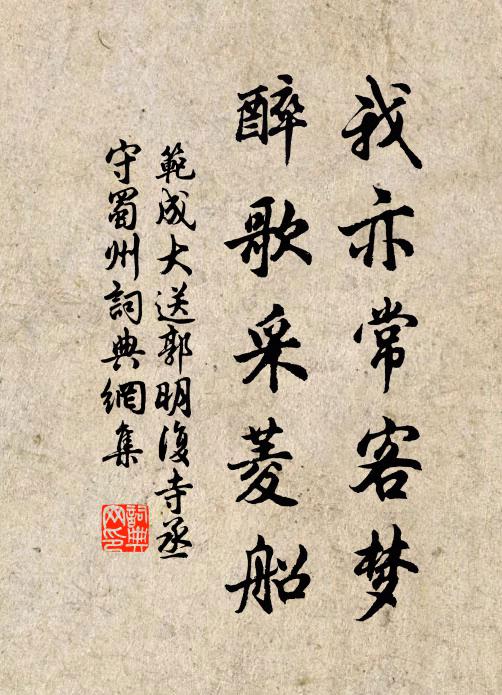 我亦常客梦
醉歌采菱船
範成大送郭明復寺丞
守蜀州詞典網集
詞典网印